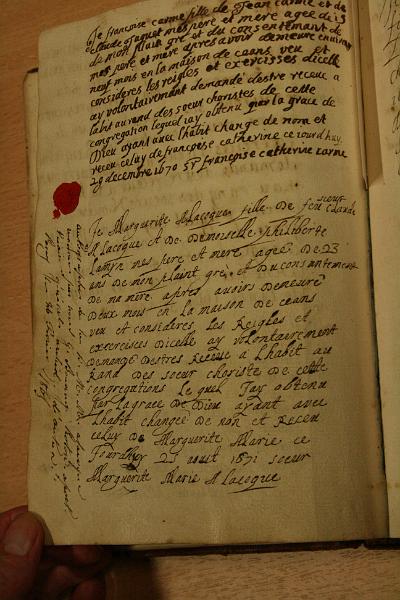 Je françoise carme fille de Jean carme et de
claude jaquet mes pere et mere agee de 15
de mon plain gré et du consentement de
mes pere et mere apres avoir demeure environ
neuf mois en la maison de ceans veu et
consideres les reigles et exercisses dicelle
ay volontairement demandé destre receue a
labit au rend des soeur choristes de cette
congregation lequel jay obtenu par la grace de
Dieu ayant avec lhabit change de nom et
receu celuy de françoise catherine ce jourdhuy
29 decembre 1670 Sr françoise catherine carme
Je Marguerite Alacoque fille De feu sieur Claude
Alacoque et De Demoiselle philiberte
Lamyn mes pere et mere agee De 23
ans De mon plaint gre et Du consantement
De ma mere apres avoirs Demeuré
Deux mois en La maison De ceans
veu et consideres Les Reigles et
exercisses Dicelle ay volontairement
Demandé Destres Receue a Lhabit au
Rand Des soeur choriste De cette
congregations Le quel Jay obtenu
par La grace De Dieu ayant avec
Lhabit changée De non et Receu
celuy De Marguerite Marie ce
Jourdhuy 25 aout 1671 soeur
Marguerite Marie Alacoque